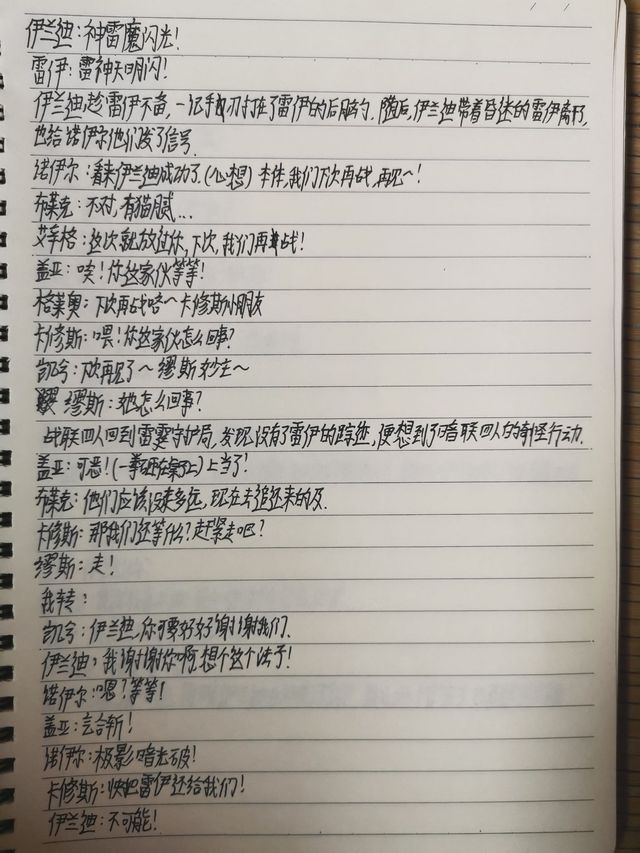 伊兰迪：神雷魔闪光！
雷伊：雷神天明闪！
伊兰迪趁雷伊不备，一记手刀打在了雷伊的后脑勺，随后，伊兰迪带着昏迷的雷伊离开，
也给诺伊尔他们发了信号。
诺伊尔：看来伊兰迪成功了。（心想）卡修，我们下次再战，再见～！
布莱克：不对，有猫腻…
艾辛格：这次就放过你，下次，我们再战！
盖亚：唉！你这家伙等等！
格莱奥：下次再战唔～卡修斯小朋友
卡修斯：喂！你这家伙怎么回事？
凯兮：下次再见了～缪斯妙主～
缪斯：她怎么回事？
战联四人回到雷霆守护局，发现没有了雷伊的踪迹，便想到了暗联四人的奇怪行动.
盖亚：可恶！（一拳砸在桌上）上当了！
布莱克：他们应该没走多远，现在去追还来的及.
卡修斯：那我们还等什么？赶紧走吧？
缪斯：走！
我转：
凯兮：伊兰迪，你可要好好谢谢我们.
伊兰迪：我谢谢你啊，想个这个法子！
诺伊尔：嗯？等等！
盖亚：气合斩！
诺伊尔：极影暗光破！
卡修斯：快把雷伊还给我们！
伊兰迪：不可能！